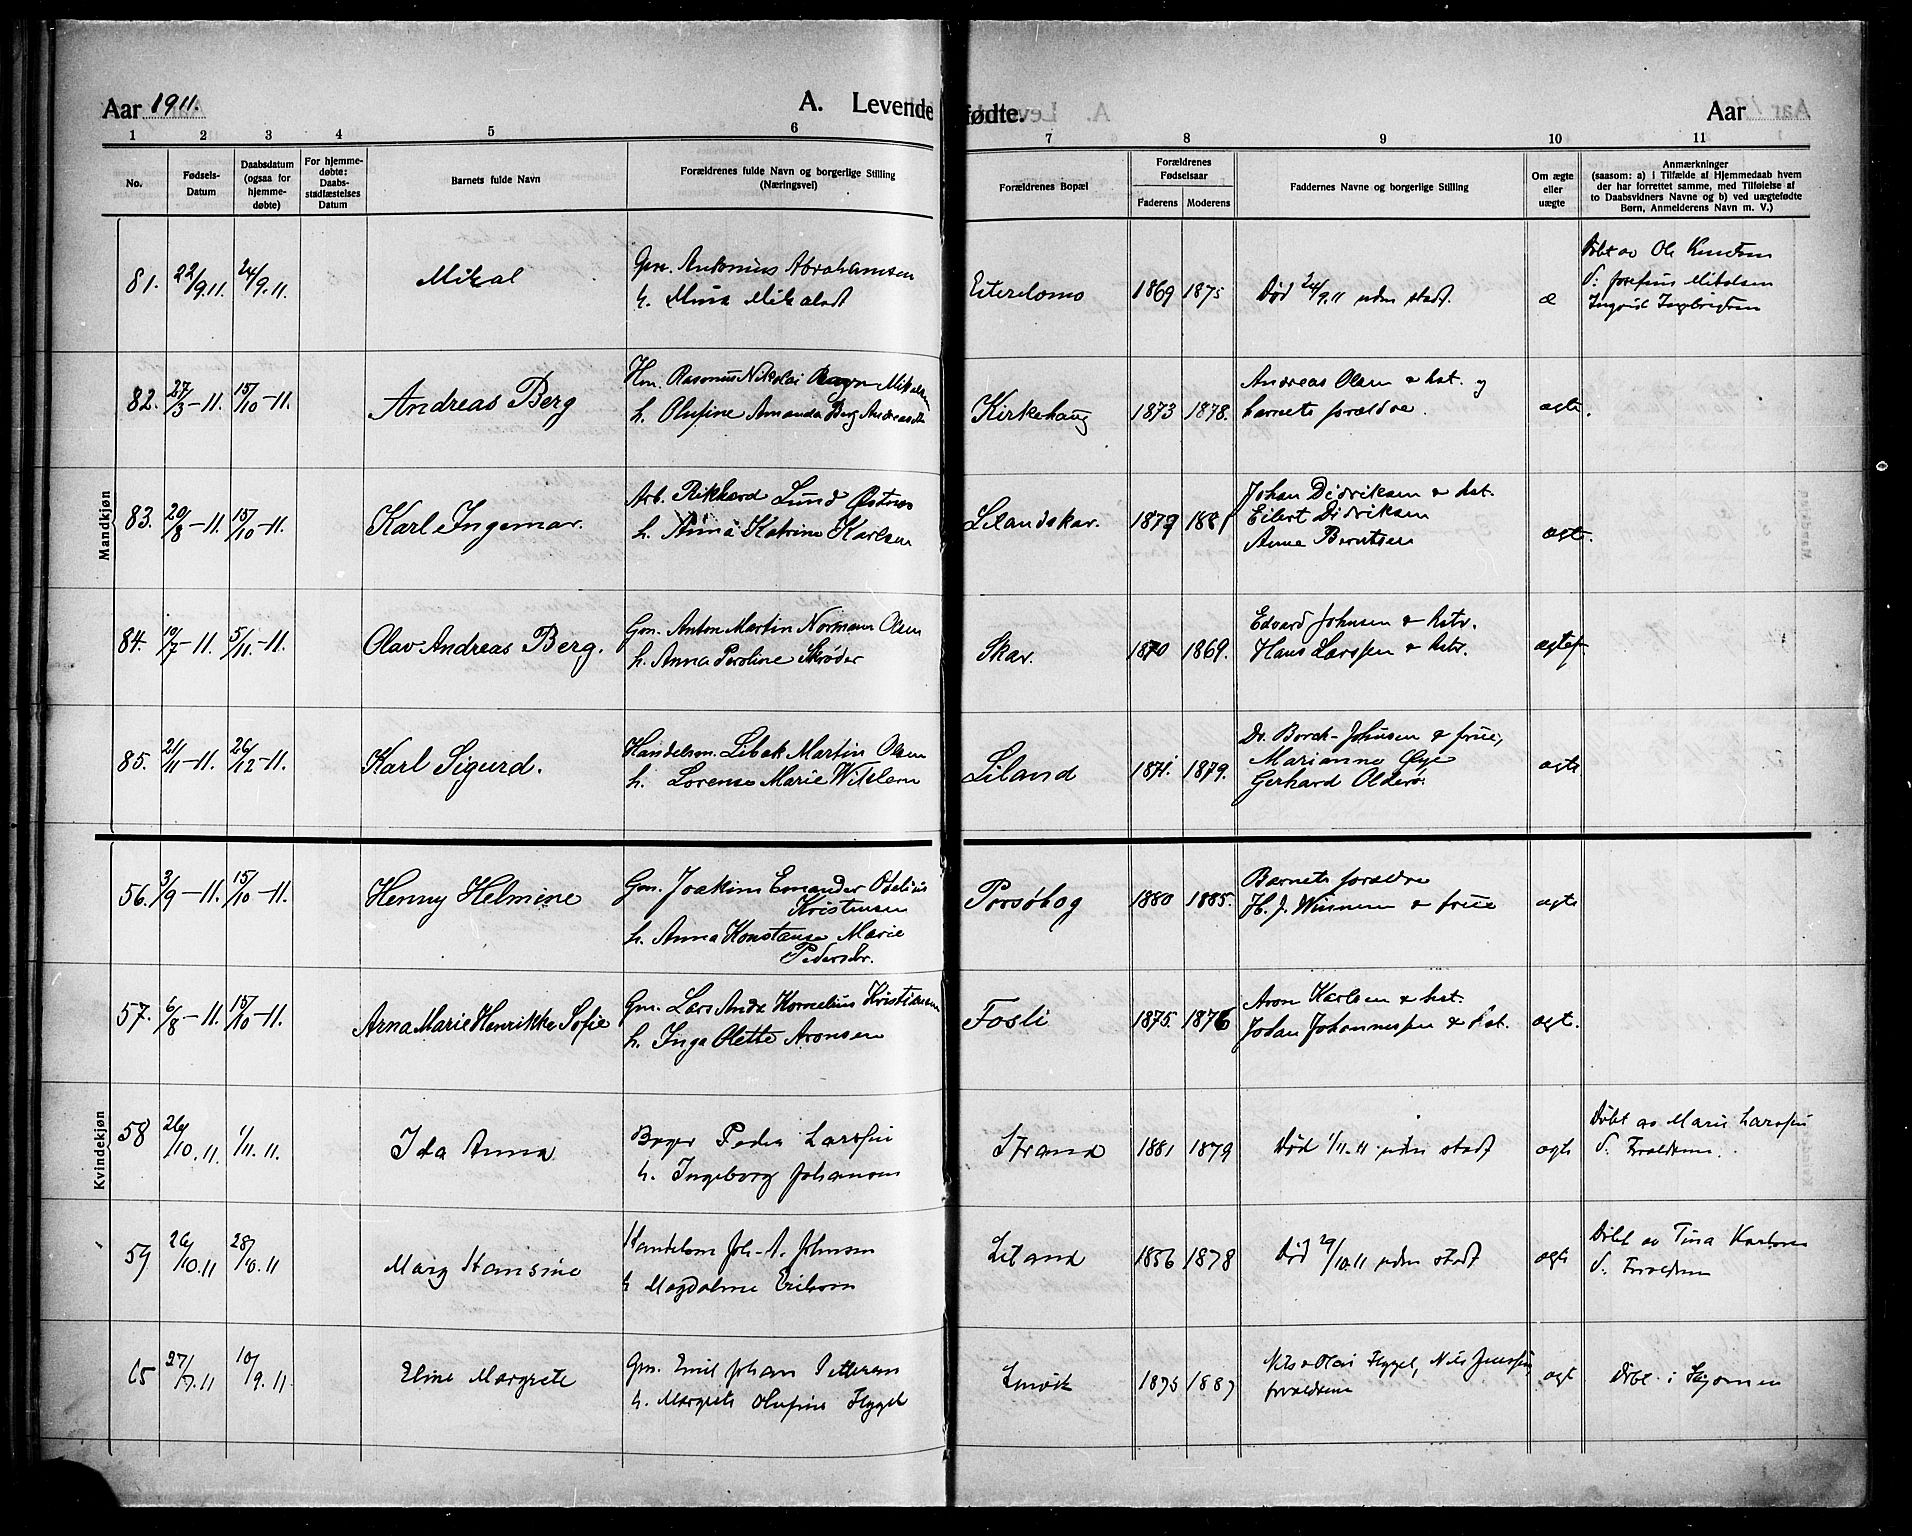 Aar 1911.
A. Levende fødte.
Aar
1 2 3 4 5 6 7 8 9 10 11
No.
Fødsels-
Datum
Daabsdatum
(ogsaa for
hjemme-
døbte)
For hjemme-
døbte:
Daabs-
stadfæstelses
Datum
Barnets fulde Navn
Forældrenes fulde Navn og borgerlige Stilling
(Næringsvei)
Forældrenes Bopæl
Forældrenes
Fødselsaar
Faderens Moderens
Faddernes Navne og borgerlige Stilling
Om ægte
eller
uægte
Anmærkninger
(saasom: a) i Tilfælde af Hjemmedaab hvem
der har forrettet samme, med Tilføielse af
to Daabsvidners Navne og b) ved uægtefødte
Børn, Anmelderens Navn m. V.)
Mandkjøn
81. 22/9.11. 24/9.11. Mikal
Gm. Antonius Abrahamsen
h. Mina Mikalsdt
1869 1875
Død 24/9.11 uden stadf.
æ
Døbt av Ole Knudsen
V: Josefine Mikalsen
Ingvid Ingbrigtsen
82. 27/3-11. 15/10-11. Andreas Berg
Hm. Rasmus Nikolai Mikalsen
h. Olufine Amanda Berg Andreasdt
Kirkehaug
1873 1878.
Andreas Olsen & hst. og
barnets forældre.
ægte.
83. 20/8-11. 15/10-11. Karl Ingemar.
Arb. Rikhard Lund Østnes
h. Anna Katrine Karlsen
Lilandskar.
1879 1881
Johan Didriksen & hst.
Eilert Didriksen
Anne Berntsen
ægt.
84. 10/7-11. 5/11-11. Olav Andreas Berg.
Gm. Anton Martin Normann Olsen
h. Anna Peroline Skrøder
Skar.
1870 1869.
Edvard Johnsen & hstr.
Hans Larssen & hstr.
ægtef
85. 21/11-11. 26/12-11. Karl Sigurd.
Handelsm. Libak Martin Olsen
h. Lorense Marie Wilslem
Liland
1871. 1879.
Dr. Borch-Johnsen & frue,
Marianne Øye
Gerhard Olderø.
ægte
Kvindekjøn
56. 3/9-11. 15/10-11. Henny Helmine
Gm. Joakim Emander Odelius
Kristensen
h. Anna Konstanse Marie
Pedersdr.
1880 1885.
Barnets forældre
H. J. Winnem & frue
ægte
57. 6/8-11. 15/10-11. Arna Marie Henrikke Sofie
Gm. Lars Andr Kornelius Kristiansen
h. Inga Olette Aronsen
Fosli
1875. 1876
Aron Karlsen & hst.
Johan Johannessen & hst.
ægt.
58 26/10.11. 1/11.11. Ida Anna
Peder Larssen
h. Ingeborg Johansen
Strand
1881 1879
Død 1/11.11 uden stadf
ægte
Døbt av Marie Larssen
V. Forældrene.
59 26/10.11 28/10.11 Mary Hansine
Handelsm Joh. A. Johnsen
h Magdalene Eriksen
Liland
1856 1878
Død 29/10.11 uden stadf
ægte
Døbt av Tina Karlsen
V. Forældrene
65 27/7.11 10/9.11. Eline Margrete
Gm. Emil Johan Pettersen
h. Margrete Olufine Hygel
1875 1887
Nils & Olai Hygel, Nils Jenssen,
forældrene
ægt
Døbt i Skjomen